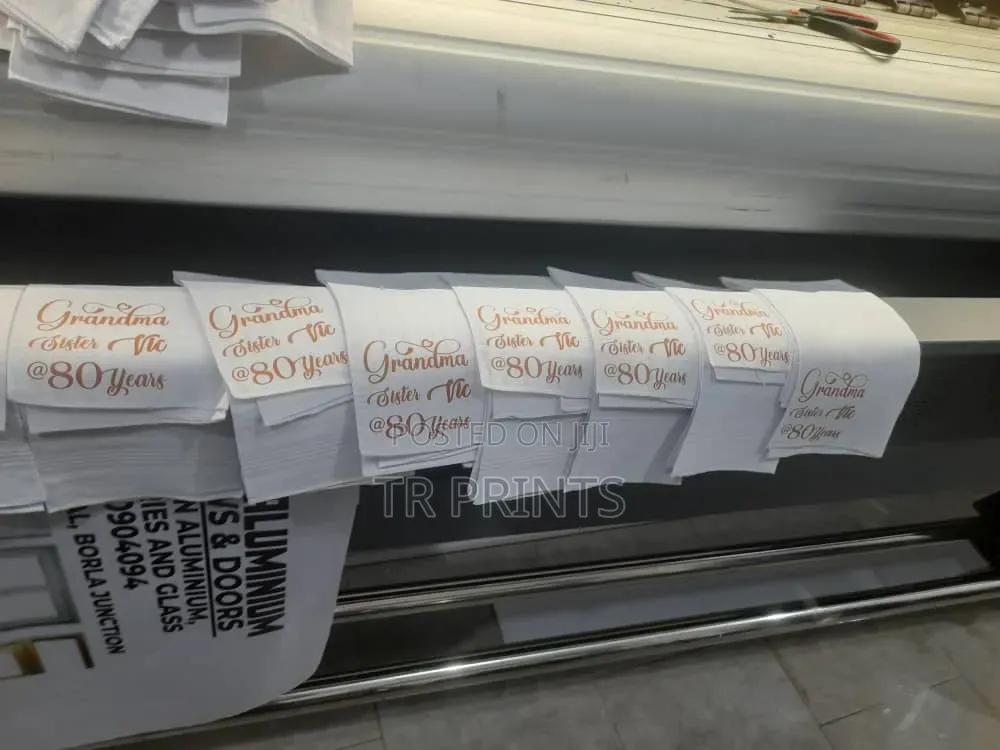 Grandma
Sister Vic
@80 Years
Grandma
Sister Vic
@80 Years
Grandma
Sister Vic
@80 Years
Grandma
Sister Vic
@80 Years
Grandma
Sister Vic
@80 Years
Grandma
Sister Vic
@80 Years
Grandma
Sister Vic
@80 Years
POSTED ON JIJI
TR PRINTS
LUMINIUM
& DOORS
ALUMINIUM,
AND GLASS
0904094
BORLA JUNCTION